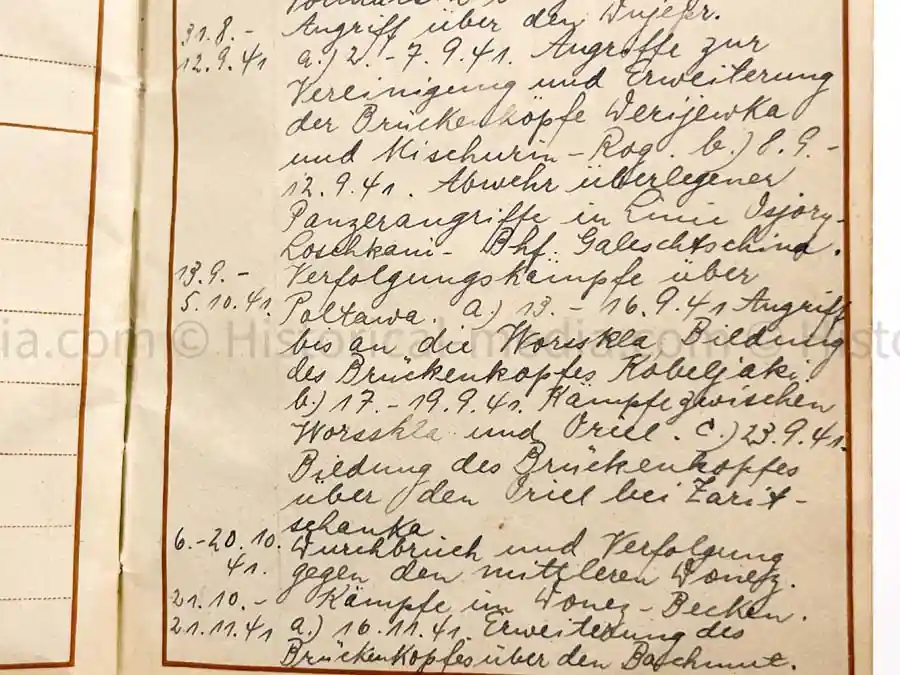 31.8.- Angriff über den Dnjepr.
12.9.41 a.) 2. - 7.9.41. Angriffe zur
Vereinigung und Erweiterung
der Brückenköpfe Derijewka
und Mischurin-Rog. b.) 8.9.-
12.9.41. Abwehr überlegener
Panzerangriffe in Linie Osjory-
Loschkani - Bhf. Galeschtschina.
13.9. - Verfolgungskämpfe über
5.10.41. Poltawa. a) 13. - 16.9.41 Angriff
bis an die Worsskla Bildung
des Brückenkopfes Kobeljaki.
b.) 17. - 19.9.41. Kämpfe zwischen
Worsskla und Oriel. c.) 23.9.41.
Bildung des Brückenkopfes
über den Oriel bei Zarit-
schanka
6.-20.10. Durchbruch und Verfolgung
41. gegen den mittleren Donez.
21.10.- Kämpfe im Donez-Becken.
21.11.41 a.) 16.11.41. Erweiterung des
Brückenkopfes über den Bachmut.
ia.com © Historicalmedia.com © Histo